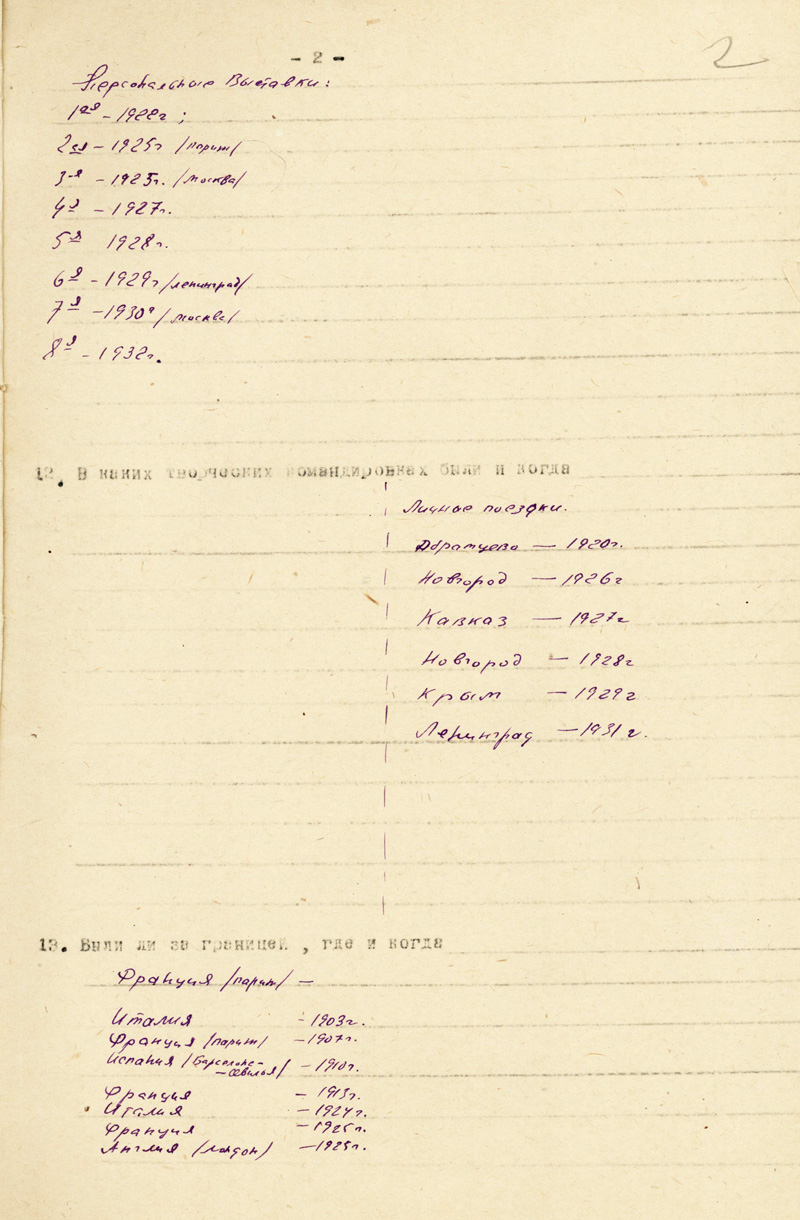 - 2 -
2
Персональные Выставки:
1ая - 1922г ;
2ая - 1925г /Париж/
3-я - 1925г. /Москва/
4я - 1927г.
5я 1928г.
6я - 1929г /Ленинград/
7я - 1930г /Москва/
8я - 1932г.
12. В каких творческих командировках были и когда
Личные поездки.
Абрамцево — 1920г.
Новгород — 1926г
Кавказ — 1927г
Новгород — 1928г
Крым — 1929г
Ленинград — 1931г.
13. Были ли за границей , где и когда
Франция /Париж/ —
Италия - 1903г.
Франция /Париж/ - 1907г.
Испания /Барселона-
- Севилья/ - 1910г.
Франция - 1913г.
Италия - 1924г.
Франция - 1925г.
Англия /Лондон/ - 1925г.